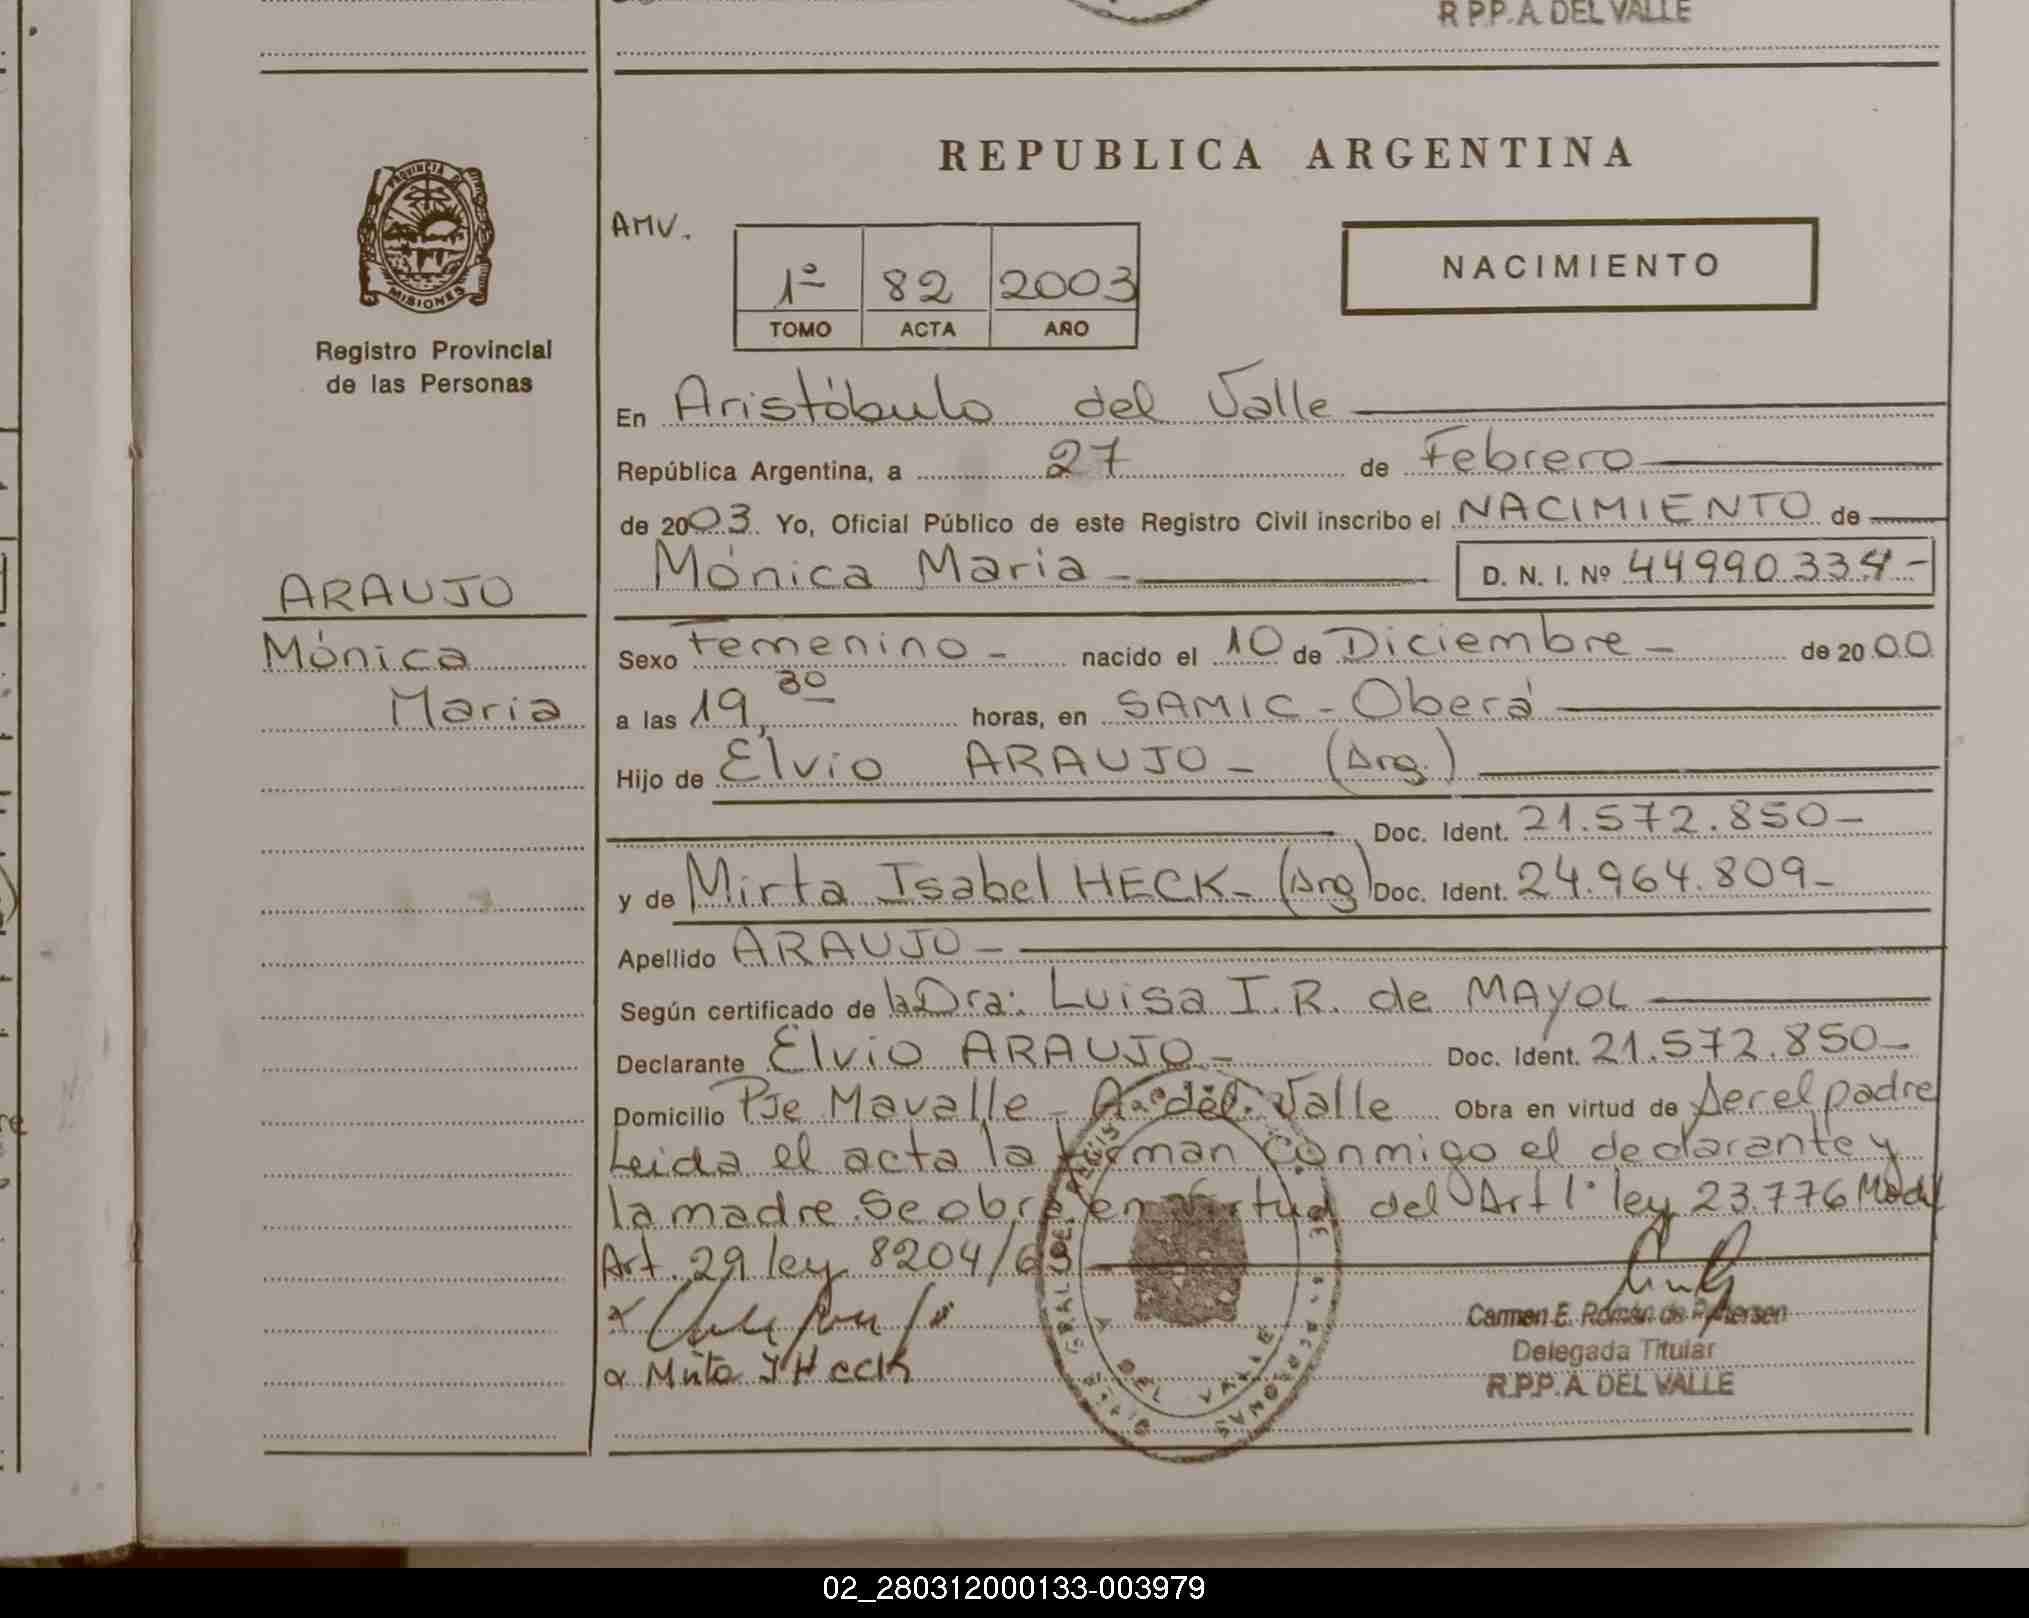 R P.P. A. DEL VALLE
REPUBLICA ARGENTINA
PROVINCIA DE
MISIONES
Registro Provincial
de las Personas
AMV.
1º 82 2003
TOMO ACTA AÑO
NACIMIENTO
En Aristóbulo del Valle
República Argentina, a 27 de Febrero
de 2003. Yo, Oficial Público de este Registro Civil inscribo el NACIMIENTO de
Mónica Maria - D. N. I. Nº 44990334-
ARAUJO
Mónica
Maria
Sexo Femenino - nacido el 10 de Diciembre - de 2000
a las 19,30 horas, en SAMIC - Oberá
Hijo de Elvio ARAUJO - (Arg.)
Doc. Ident. 21.572.850-
y de Mirta Isabel HECK- (Arg) Doc. Ident. 24.964.809-
Apellido ARAUJO-
Según certificado de la Dra: Luisa I. R. de MAYOL
Declarante Elvio ARAUJO- Doc. Ident. 21.572.850-
Domicilio Pje Mavalle - A.º del Valle Obra en virtud de ser el padre
Leida el acta la firman conmigo el declarante y
la madre. Se obra en virtud del Art 1º ley 23.776 Modif
Art. 29 ley 8204/63
x
x Mirta I Heck
Carmen E. Román de Petersen
Delegada Titular
R.P.P. A. DEL VALLE
DEL VALLE
02_280312000133-003979